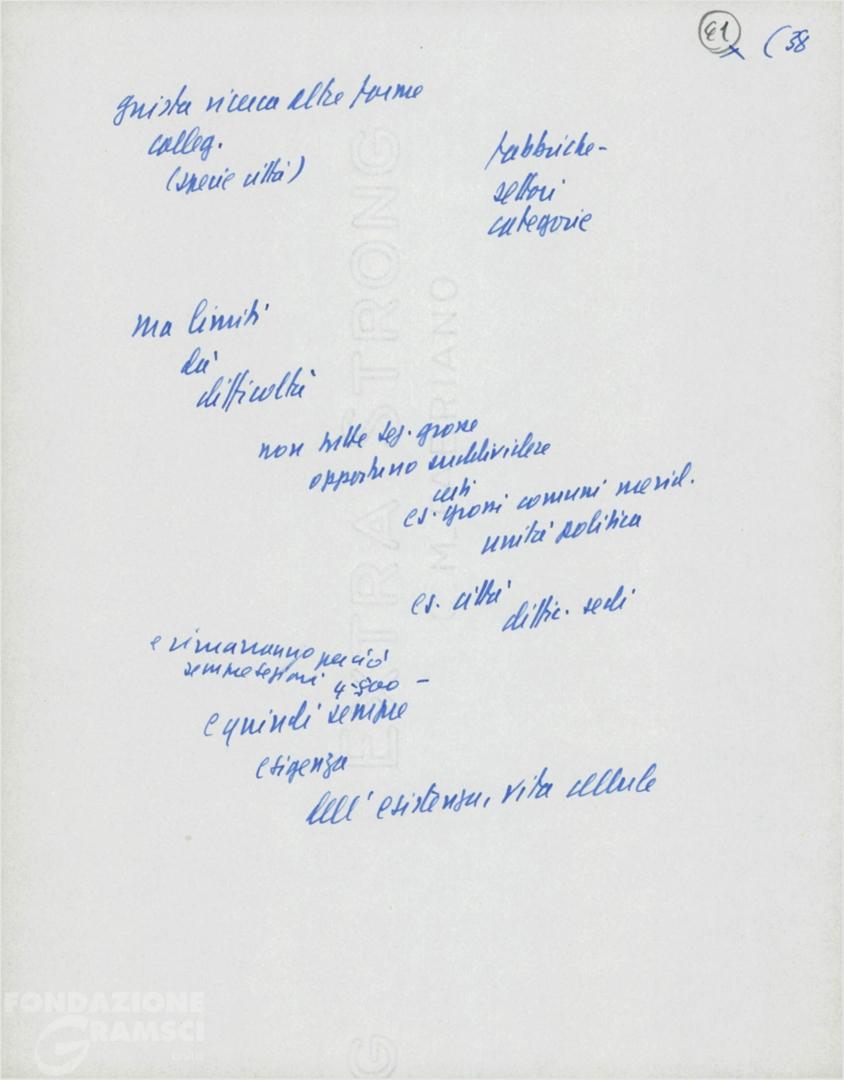 41 x (38
giusta ricerca altre forme
colleg.
(specie città)
fabbriche-
settori
categorie
ma limiti
difficoltà
non tutte sez. grosse
opportuno suddividere
es. grossi comuni merid.
unità politica
es. città
diffic. sedi
e rimarranno perciò
sempre sezioni 4-500 -
e quindi sempre
esigenza
dell' esistenza, vita cellule
EXTRA STRONG
FONDAZIONE
GRAMSCI